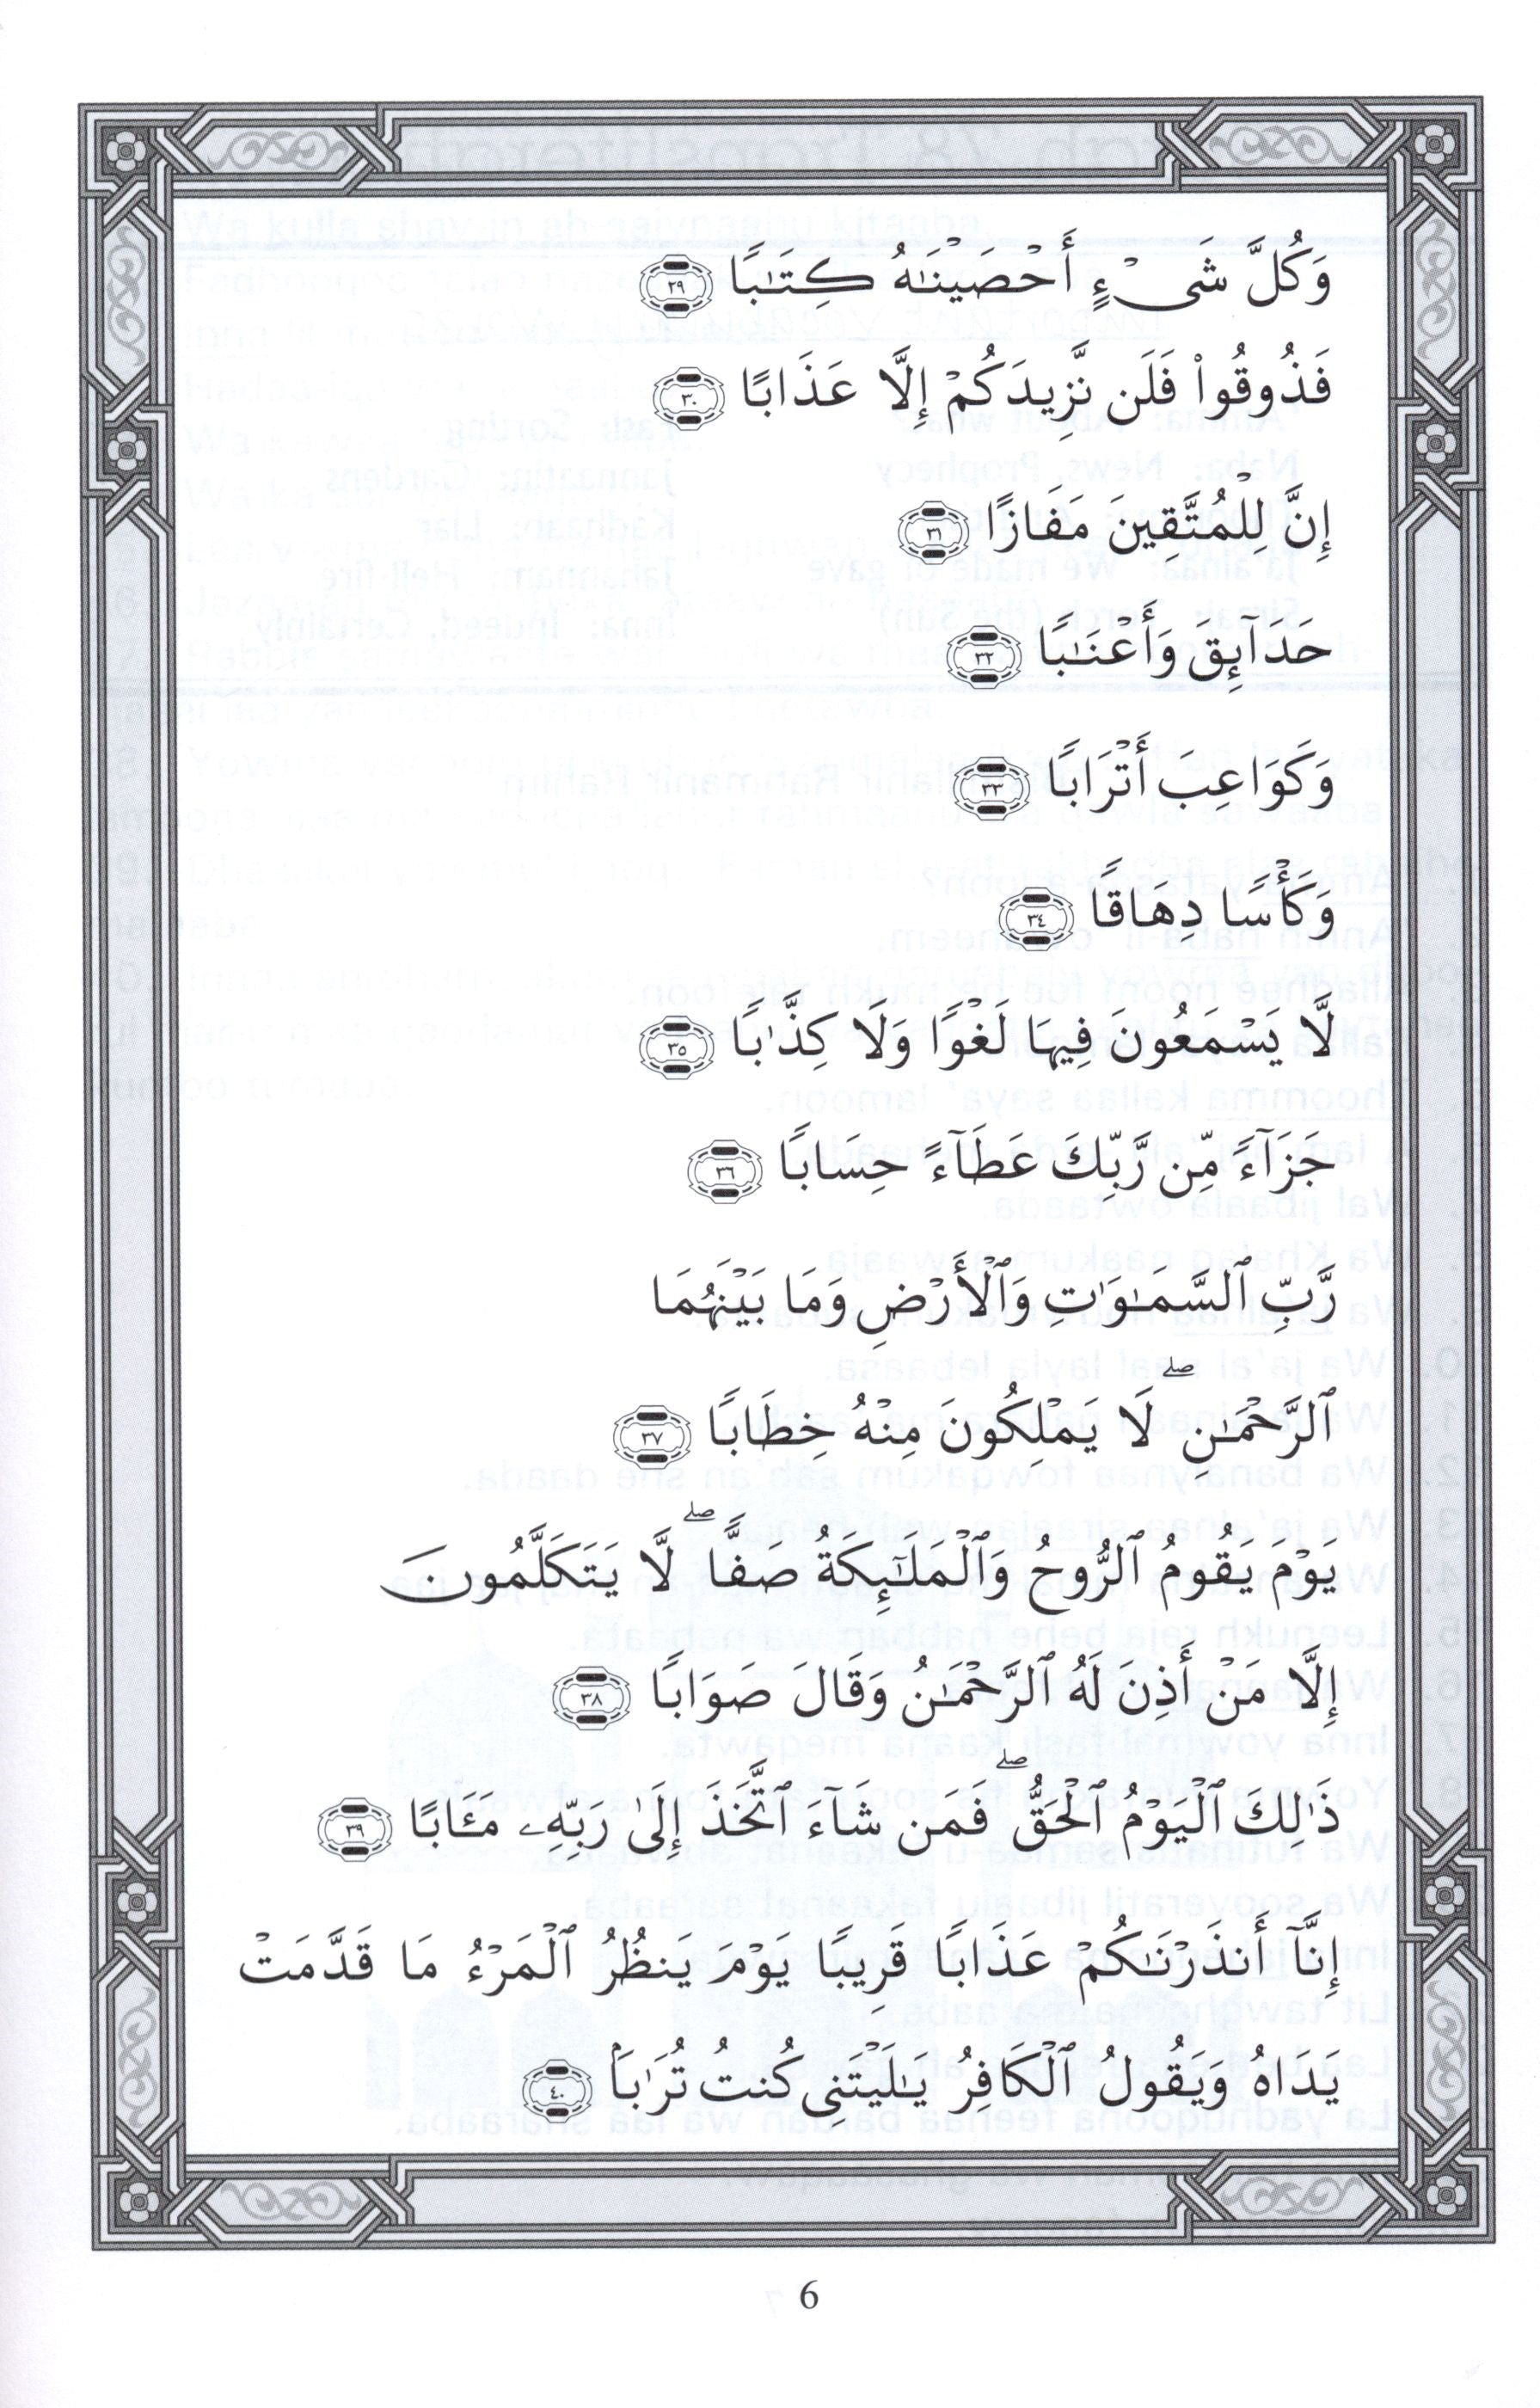 وَكُلَّ شَىْءٍ أَحْصَيْنَـٰهُ كِتَـٰبًا ٢٩
فَذُوقُوا۟ فَلَن نَّزِيدَكُمْ إِلَّا عَذَابًا ٣٠
إِنَّ لِلْمُتَّقِينَ مَفَازًا ٣١
حَدَآئِقَ وَأَعْنَـٰبًا ٣٢
وَكَوَاعِبَ أَتْرَابًا ٣٣
وَكَأْسًا دِهَاقًا ٣٤
لَّا يَسْمَعُونَ فِيهَا لَغْوًا وَلَا كِذَّٰبًا ٣٥
جَزَآءً مِّن رَّبِّكَ عَطَآءً حِسَابًا ٣٦
رَّبِّ ٱلسَّمَـٰوَٰتِ وَٱلْأَرْضِ وَمَا بَيْنَهُمَا
ٱلرَّحْمَـٰنِ ۖ لَا يَمْلِكُونَ مِنْهُ خِطَابًا ٣٧
يَوْمَ يَقُومُ ٱلرُّوحُ وَٱلْمَلَـٰٓئِكَةُ صَفًّا ۖ لَّا يَتَكَلَّمُونَ
إِلَّا مَنْ أَذِنَ لَهُ ٱلرَّحْمَـٰنُ وَقَالَ صَوَابًا ٣٨
ذَٰلِكَ ٱلْيَوْمُ ٱلْحَقُّ ۖ فَمَن شَآءَ ٱتَّخَذَ إِلَىٰ رَبِّهِۦ مَـَٔابًا ٣٩
إِنَّآ أَنذَرْنَـٰكُمْ عَذَابًا قَرِيبًا يَوْمَ يَنظُرُ ٱلْمَرْءُ مَا قَدَّمَتْ
يَدَاهُ وَيَقُولُ ٱلْكَافِرُ يَـٰلَيْتَنِى كُنتُ تُرَٰبَۢا ٤٠
6